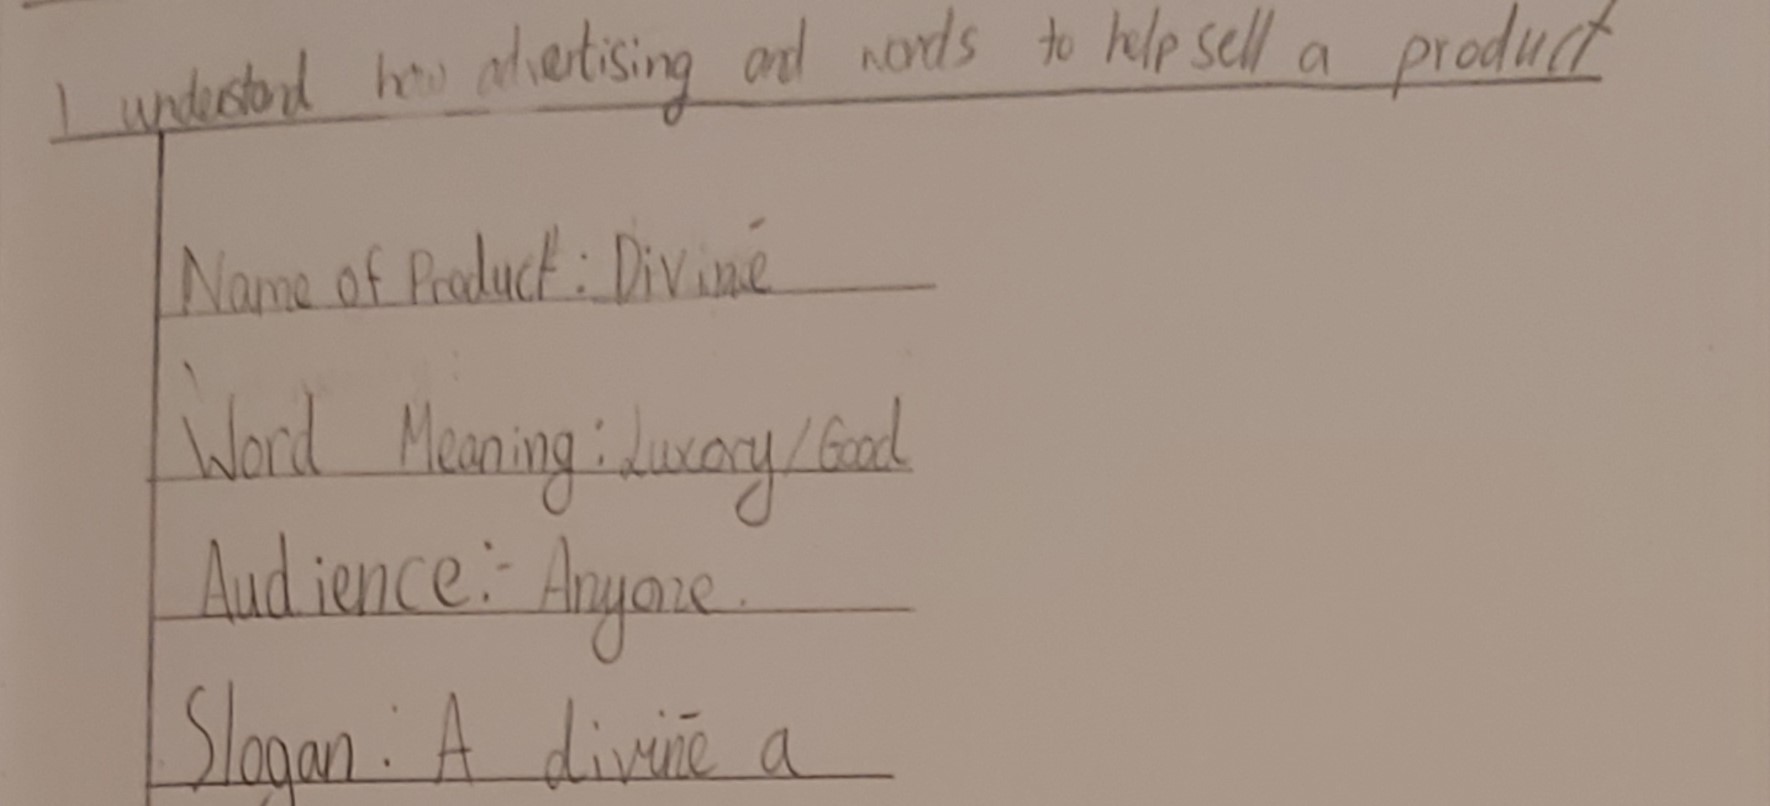 I understand how advertising and words to help sell a product
Name of Product: Divinē
Word Meaning: Luxory/Good
Audience:- Anyone.
Slogan: A divinē a